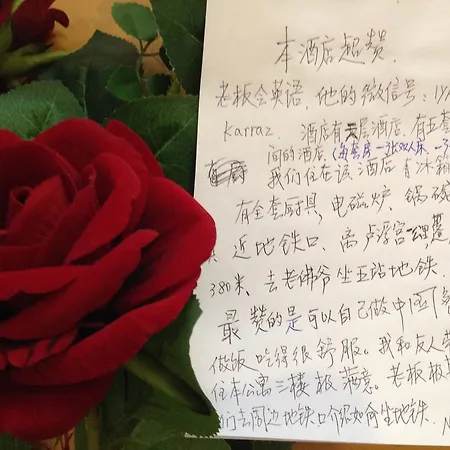 本酒店超赞.
老板会英语.他的微信号:
Karraz. 酒店有 层酒店.有五套
间的酒店.(每套房一张双人床.一
我们住在该酒店有冰箱
有全套厨具,电磁炉,锅碗
近地铁口、离卢浮宫
380米、去老佛爷坐五站地铁.
最赞的是可以自己做中国
做饭吃得很舒服。我和友人
住本公寓三楼板满意。老板
们去周边地铁口介绍如何坐地铁.